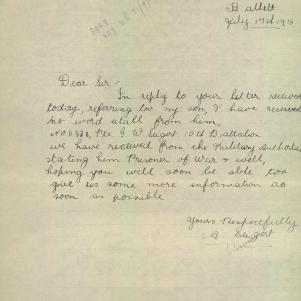 Ballett
July 17th 1916
Dear Sir -
In reply to your letter received
today, referring to my son, I have received
no word atall from him,
Pte G W Sugert 10th Battalion
we have received from the Military Authorities
stating him Prisoner of War & well,
hoping you will soon be able too
give us some more information as
soon as possible
Yours Respectfully
Sugert